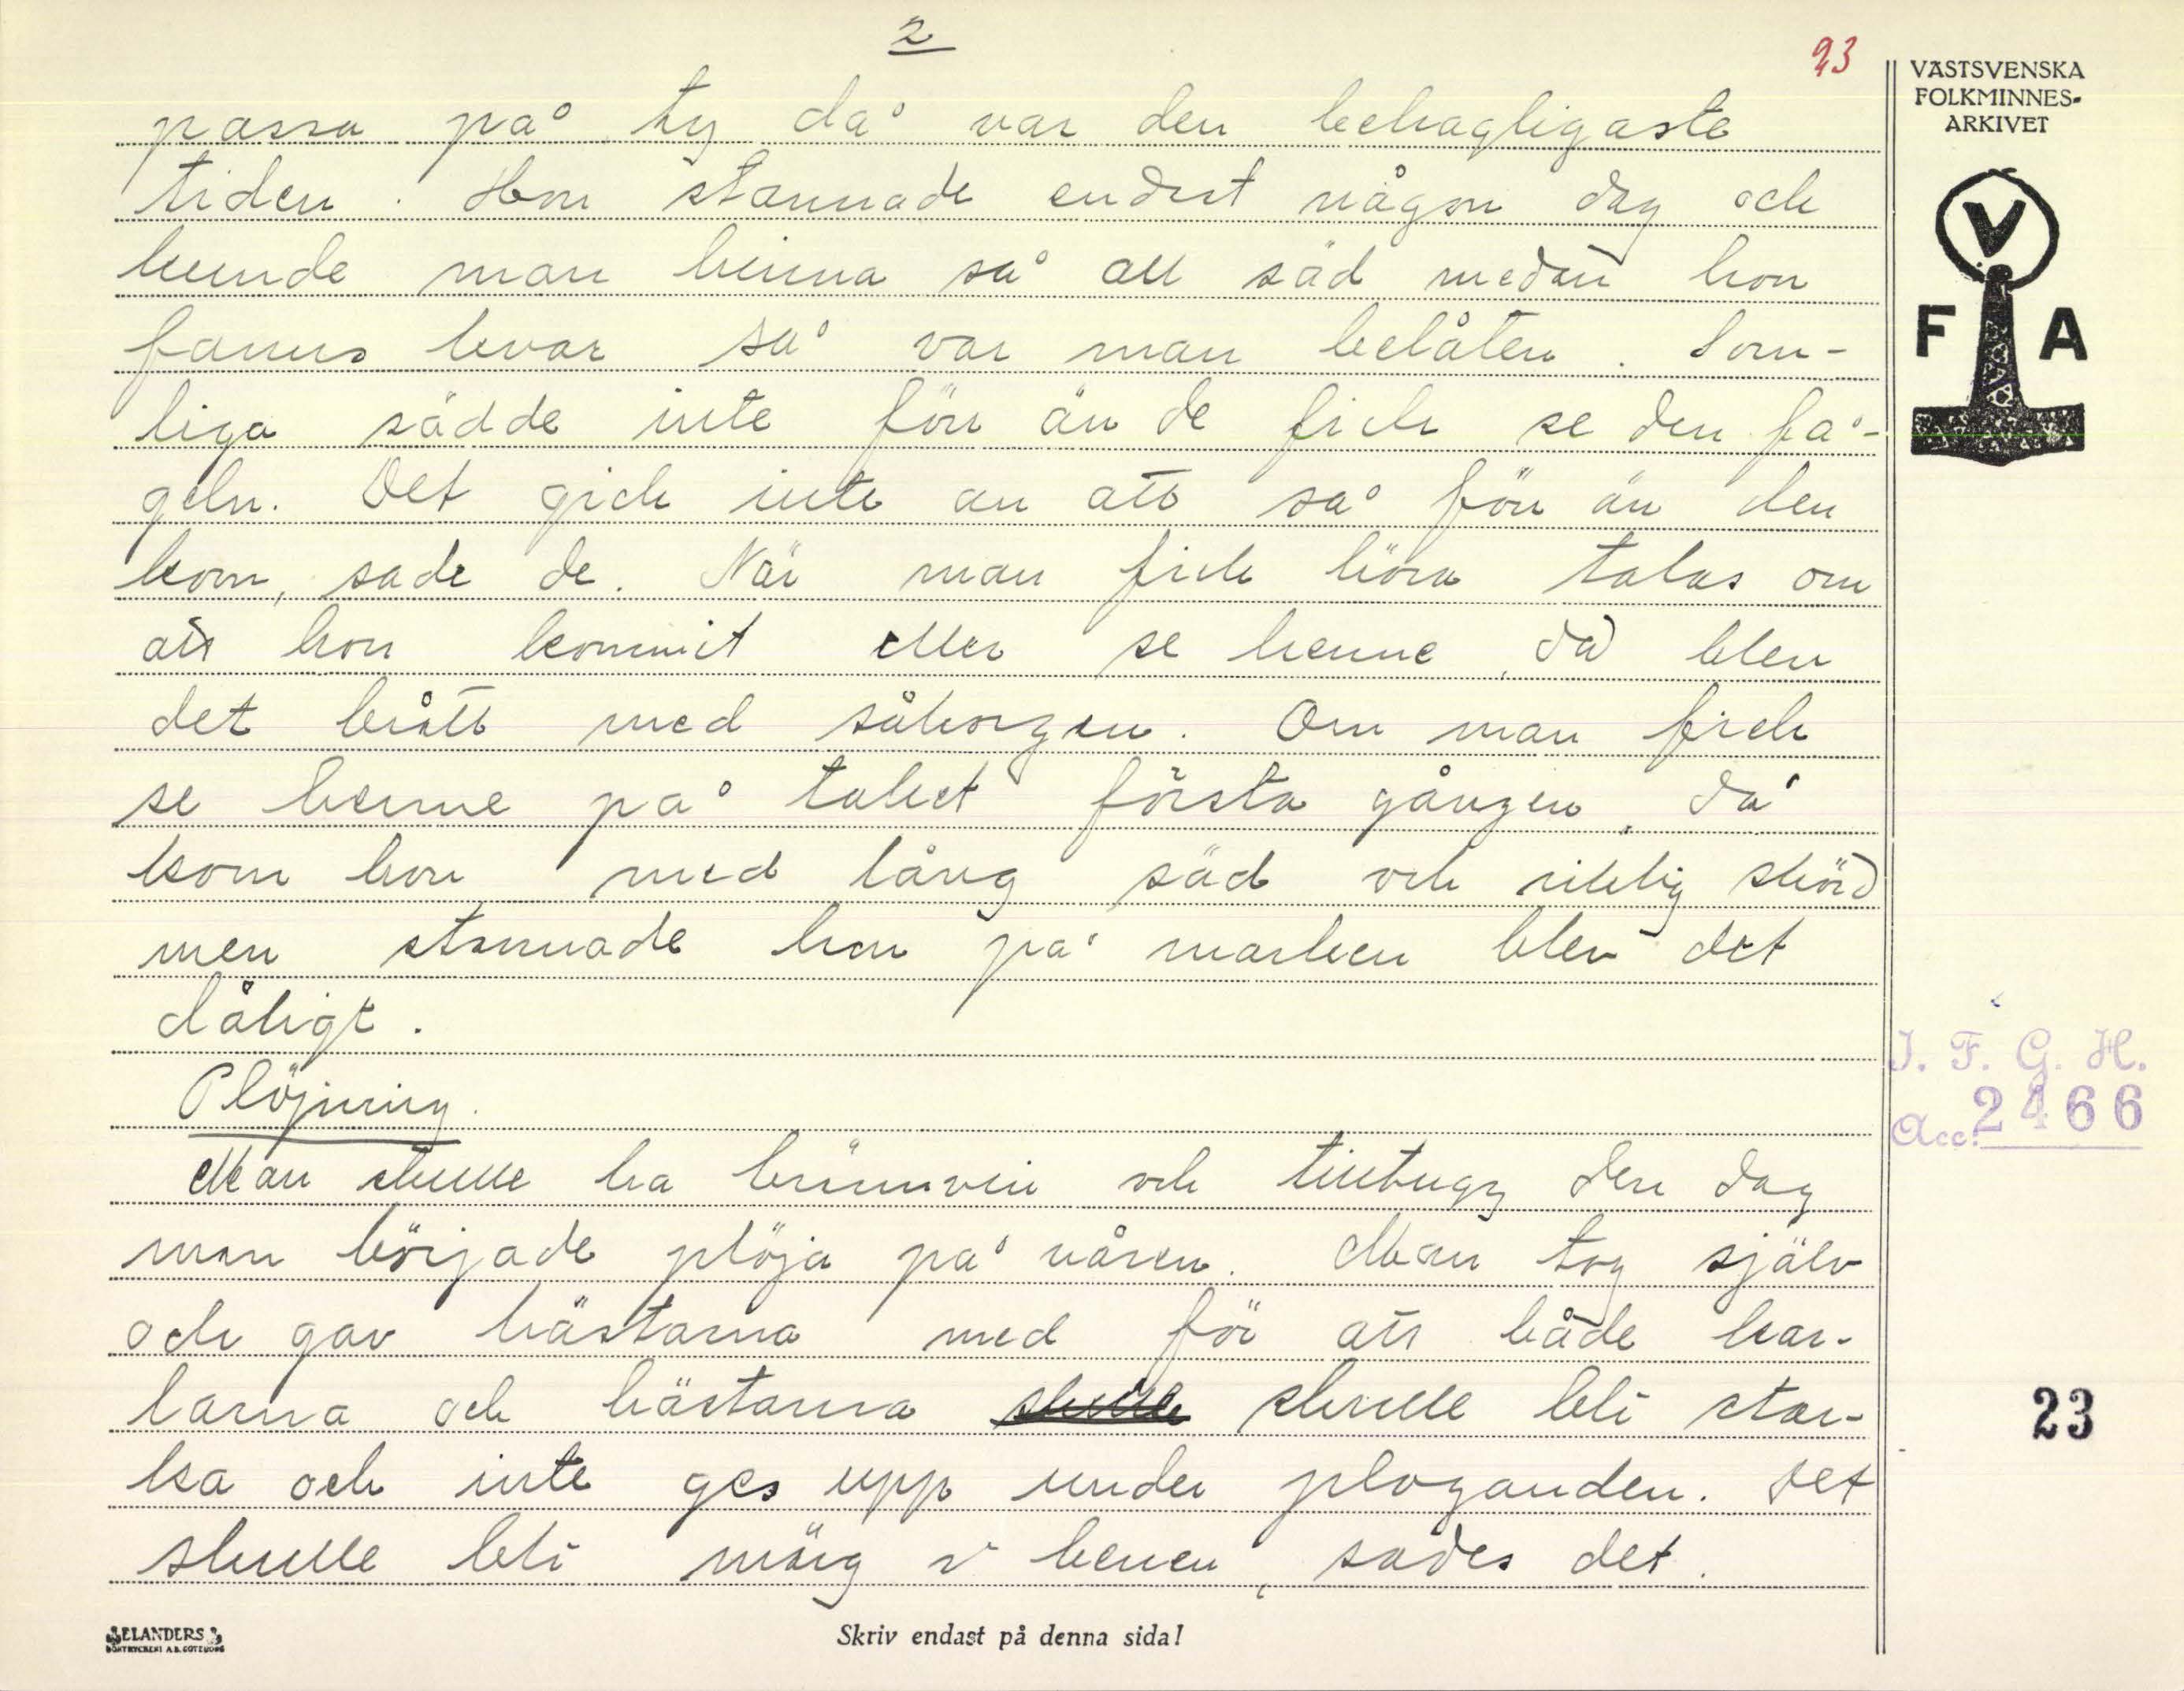 2
23
VÄSTSVENSKA
FOLKMINNES-
ARKIVET
V
F A
passa på ty då var den behagligaste
tiden. Hon stannade endast någon dag och
kunde man hinna så all säd medan hon
fanns kvar så var man belåten. Som-
liga sådde inte förr än de fick se den få-
geln. Det gick inte an att så förr än den
kom, sade de. När man fick höra talas om
att hon kommit eller se henne, då blev
det brått med såkorgen. Om man fick
se henne på taket första gången, då
kom hon med lång säd och riklig skörd
men stannade hon på marken blev det
dåligt.
Plöjning.
Man skulle ha brännvin och tilltugg den dag
man började plöja på våren. Man tog själv
och gav hästarna med för att både kar-
larna och hästarna skulle skulle bli star-
ka och inte ges upp under plogandен. Det
skulle bli märg i benen, sades det.
I. F. G. H.
Acc. 2466
23
ELANDERS
BOKTRYCKERI A.B. GÖTEBORG
Skriv endast på denna sida!